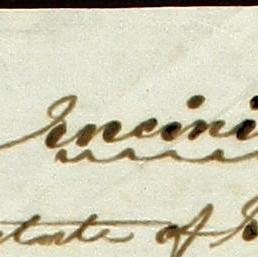 Encini
state of